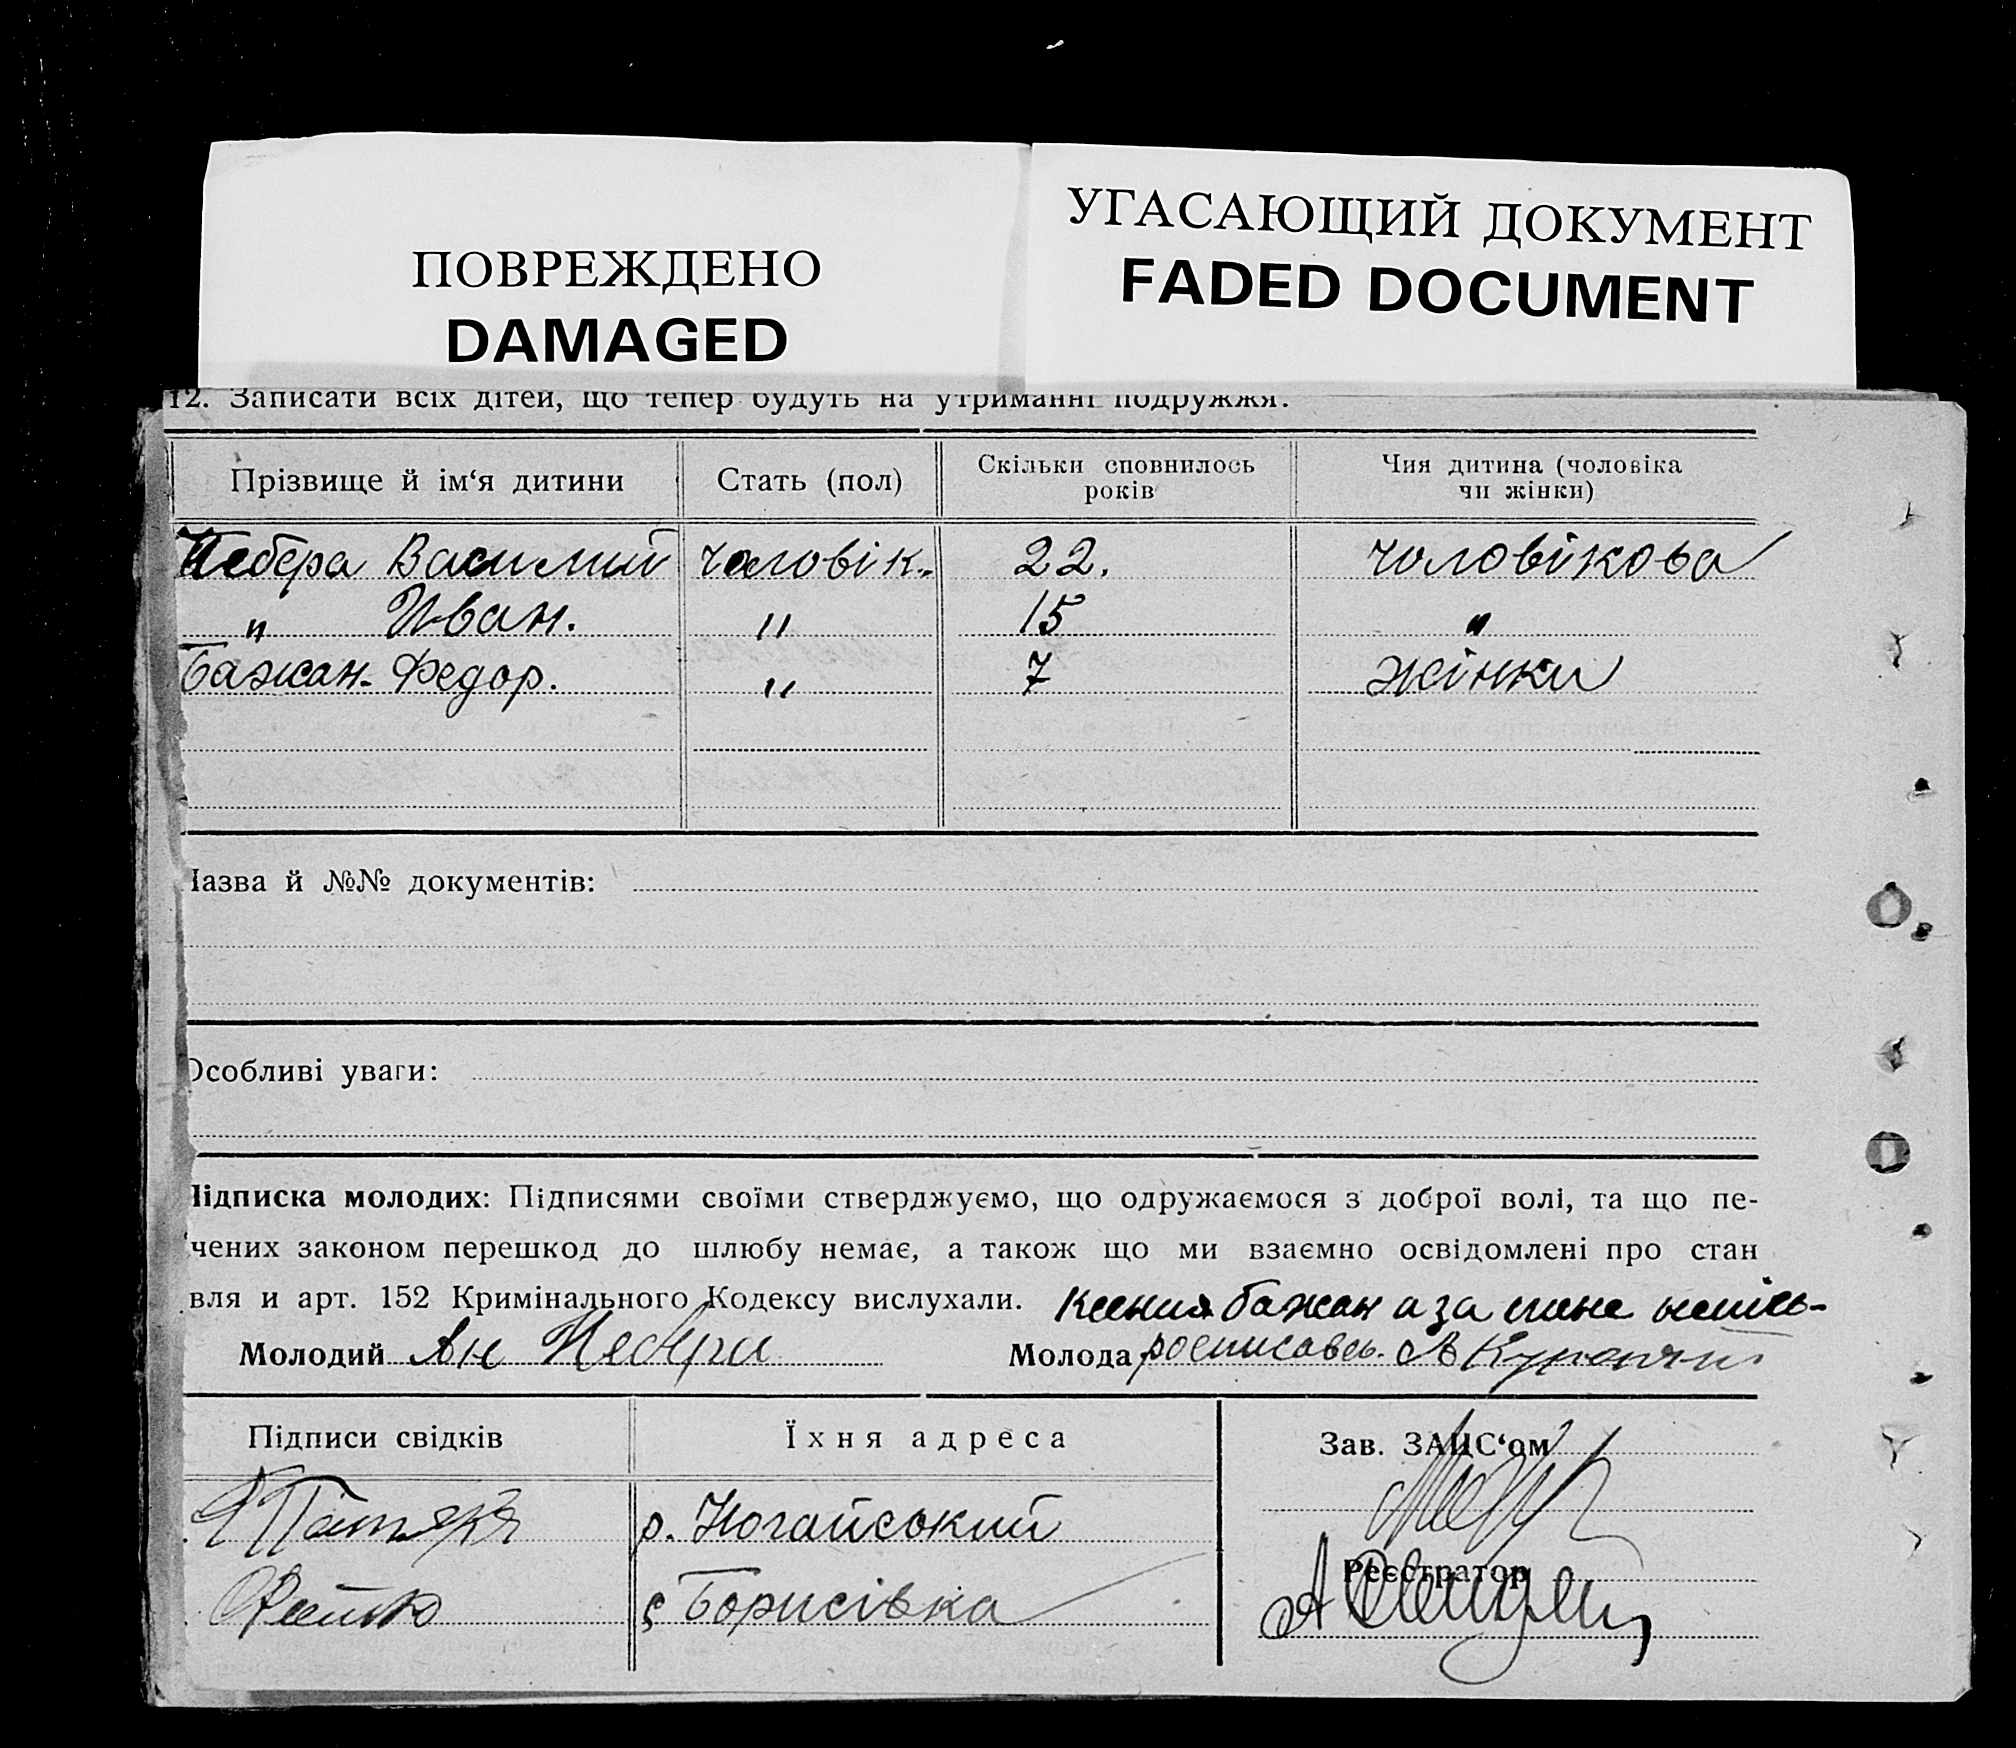 ПОВРЕЖДЕНО
DAMAGED
УГАСАЮЩИЙ ДОКУМЕНТ
FADED DOCUMENT
12. Записати всіх дітей, що тепер будуть на утриманні подружжя.
Прізвище й ім‘я дитини Стать (пол) Скільки сповнилось років Чия дитина (чоловіка чи жінки)
Небера Василий чоловік. 22. чоловікова
" Иван. " 15 "
Бажан Федор. " 7 жінки
Назва й №№ документів:
Особливі уваги:
Підписка молодих: Підписями своїми стверджуємо, що одружаємося з доброї волі, та що пе-
чених законом перешкод до шлюбу немає, а також що ми взаємно освідомлені про стан
вля и арт. 152 Кримінального Кодексу вислухали. Ксения Бажан а за
Молодий Ан Небера Молода росписавсь.
Підписи свідків Їхня адреса Зав. ЗАЦС‘ом
р. Ногайський
Реєстратор
с Борисівка